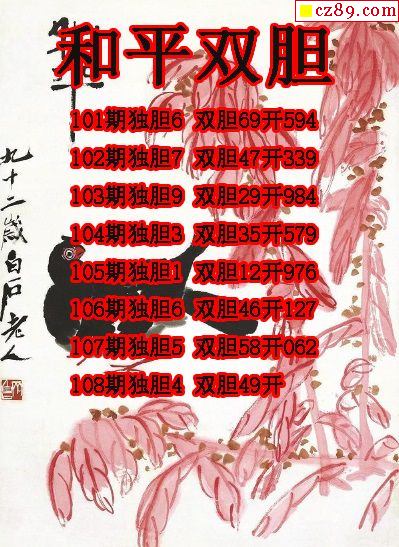 cz89.com
和平双胆
101期独胆6 双胆69开594
102期独胆7 双胆47开339
103期独胆9 双胆29开984
104期独胆3 双胆35开579
105期独胆1 双胆12开976
106期独胆6 双胆46开127
107期独胆5 双胆58开062
108期独胆4 双胆49开
九十二岁白石老人